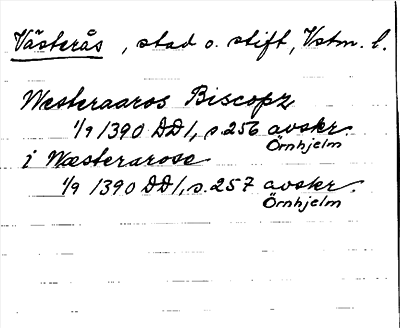 Västerås, stad o. stift, Vstm. l.
Westeraaros Biscopz
1/9 1390 DD1, s. 256 avskr.
Örnhjelm
i Wæsterarose
1/9 1390 DD1, s. 257 avskr.
Örnhjelm